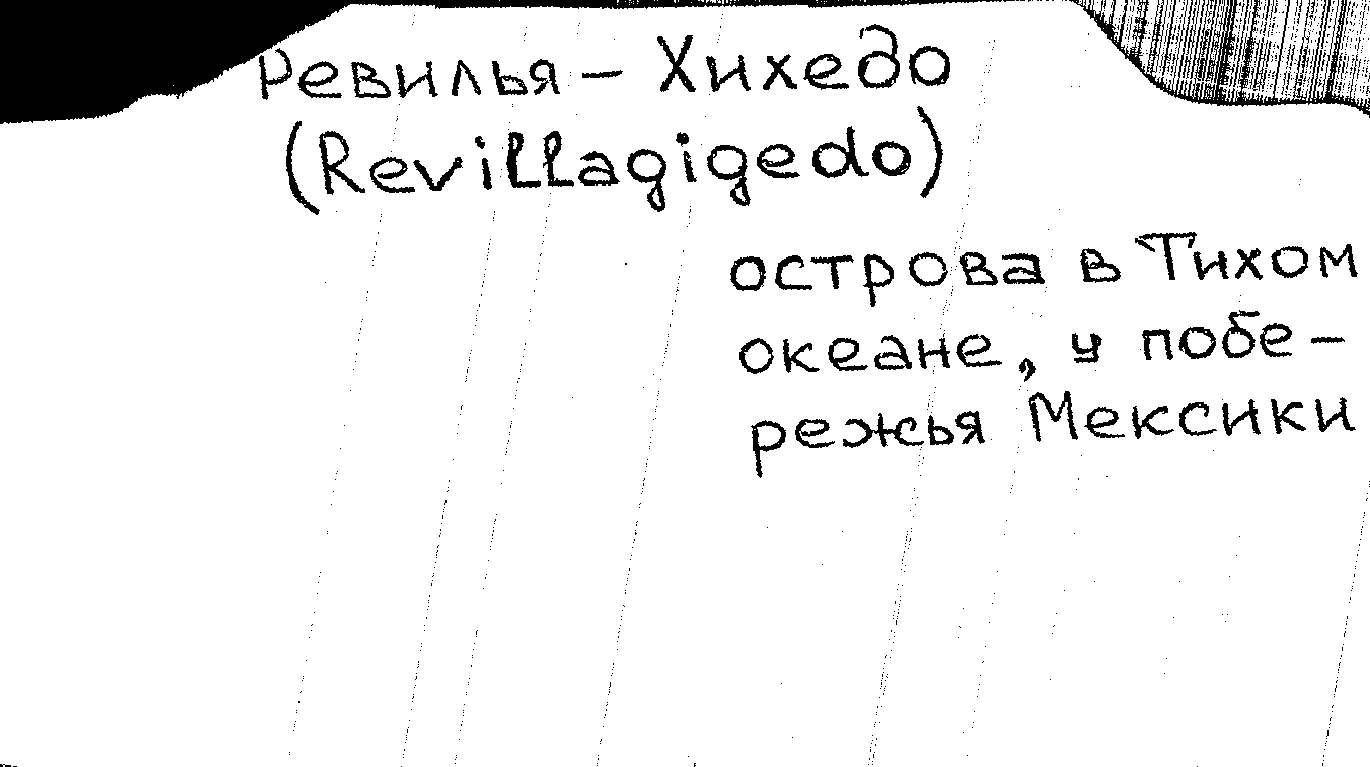 Ревилья – Хихедо
(Revillagigedo)
острова в Тихом
океане, у побе-
режья Мексики